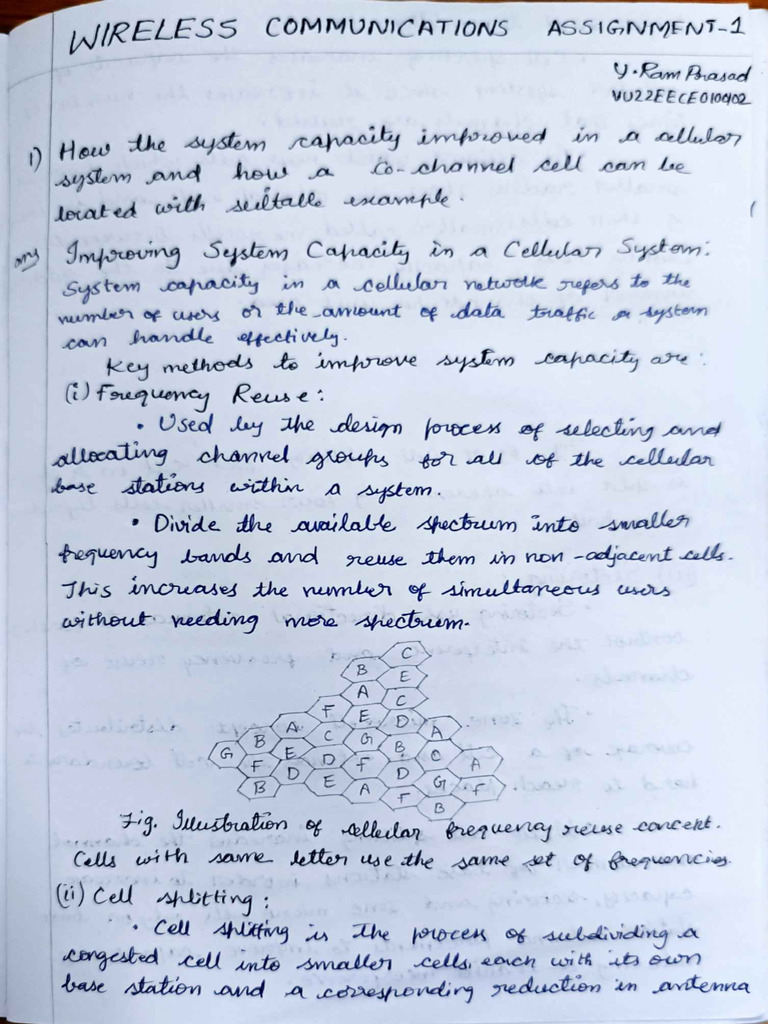 WIRELESS COMMUNICATIONS ASSIGNMENT-1
Y. Ram Prasad
VU22EECE0100402
1) How the system capacity improved in a cellular
system and how a Co-channel cell can be
located with suitable example.
ans Improving System Capacity in a Cellular System:
System capacity in a cellular network refers to the
number of users or the amount of data traffic a system
can handle effectively.
Key methods to improve system capacity are:
(i) Frequency Reuse:
• Used by the design process of selecting and
allocating channel groups for all of the cellular
base stations within a system.
• Divide the available spectrum into smaller
frequency bands and reuse them in non-adjacent cells.
This increases the number of simultaneous users
without needing more spectrum.
C
B E
A C
F E D A
A C G B C
B E D F D G A
G F D E A F B F
B
Fig. Illustration of cellular frequency reuse concept.
Cells with same letter use the same set of frequencies.
(ii) Cell splitting:
• Cell splitting is the process of subdividing a
congested cell into smaller cells, each with its own
base station and a corresponding reduction in antenna